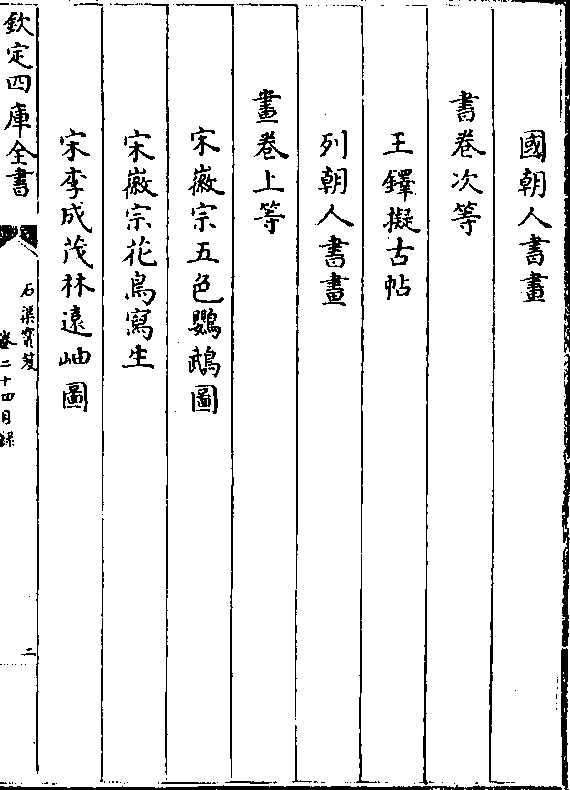 國朝人書畫
書卷次等
王鐸擬古帖
列朝人書畫
畫卷上等
宋徽宗五色鸚鵡圖
宋徽宗花鳥寫生
宋李成茂林遠岫圖
欽定四庫全書
石渠寳笈
卷二十四目録
二